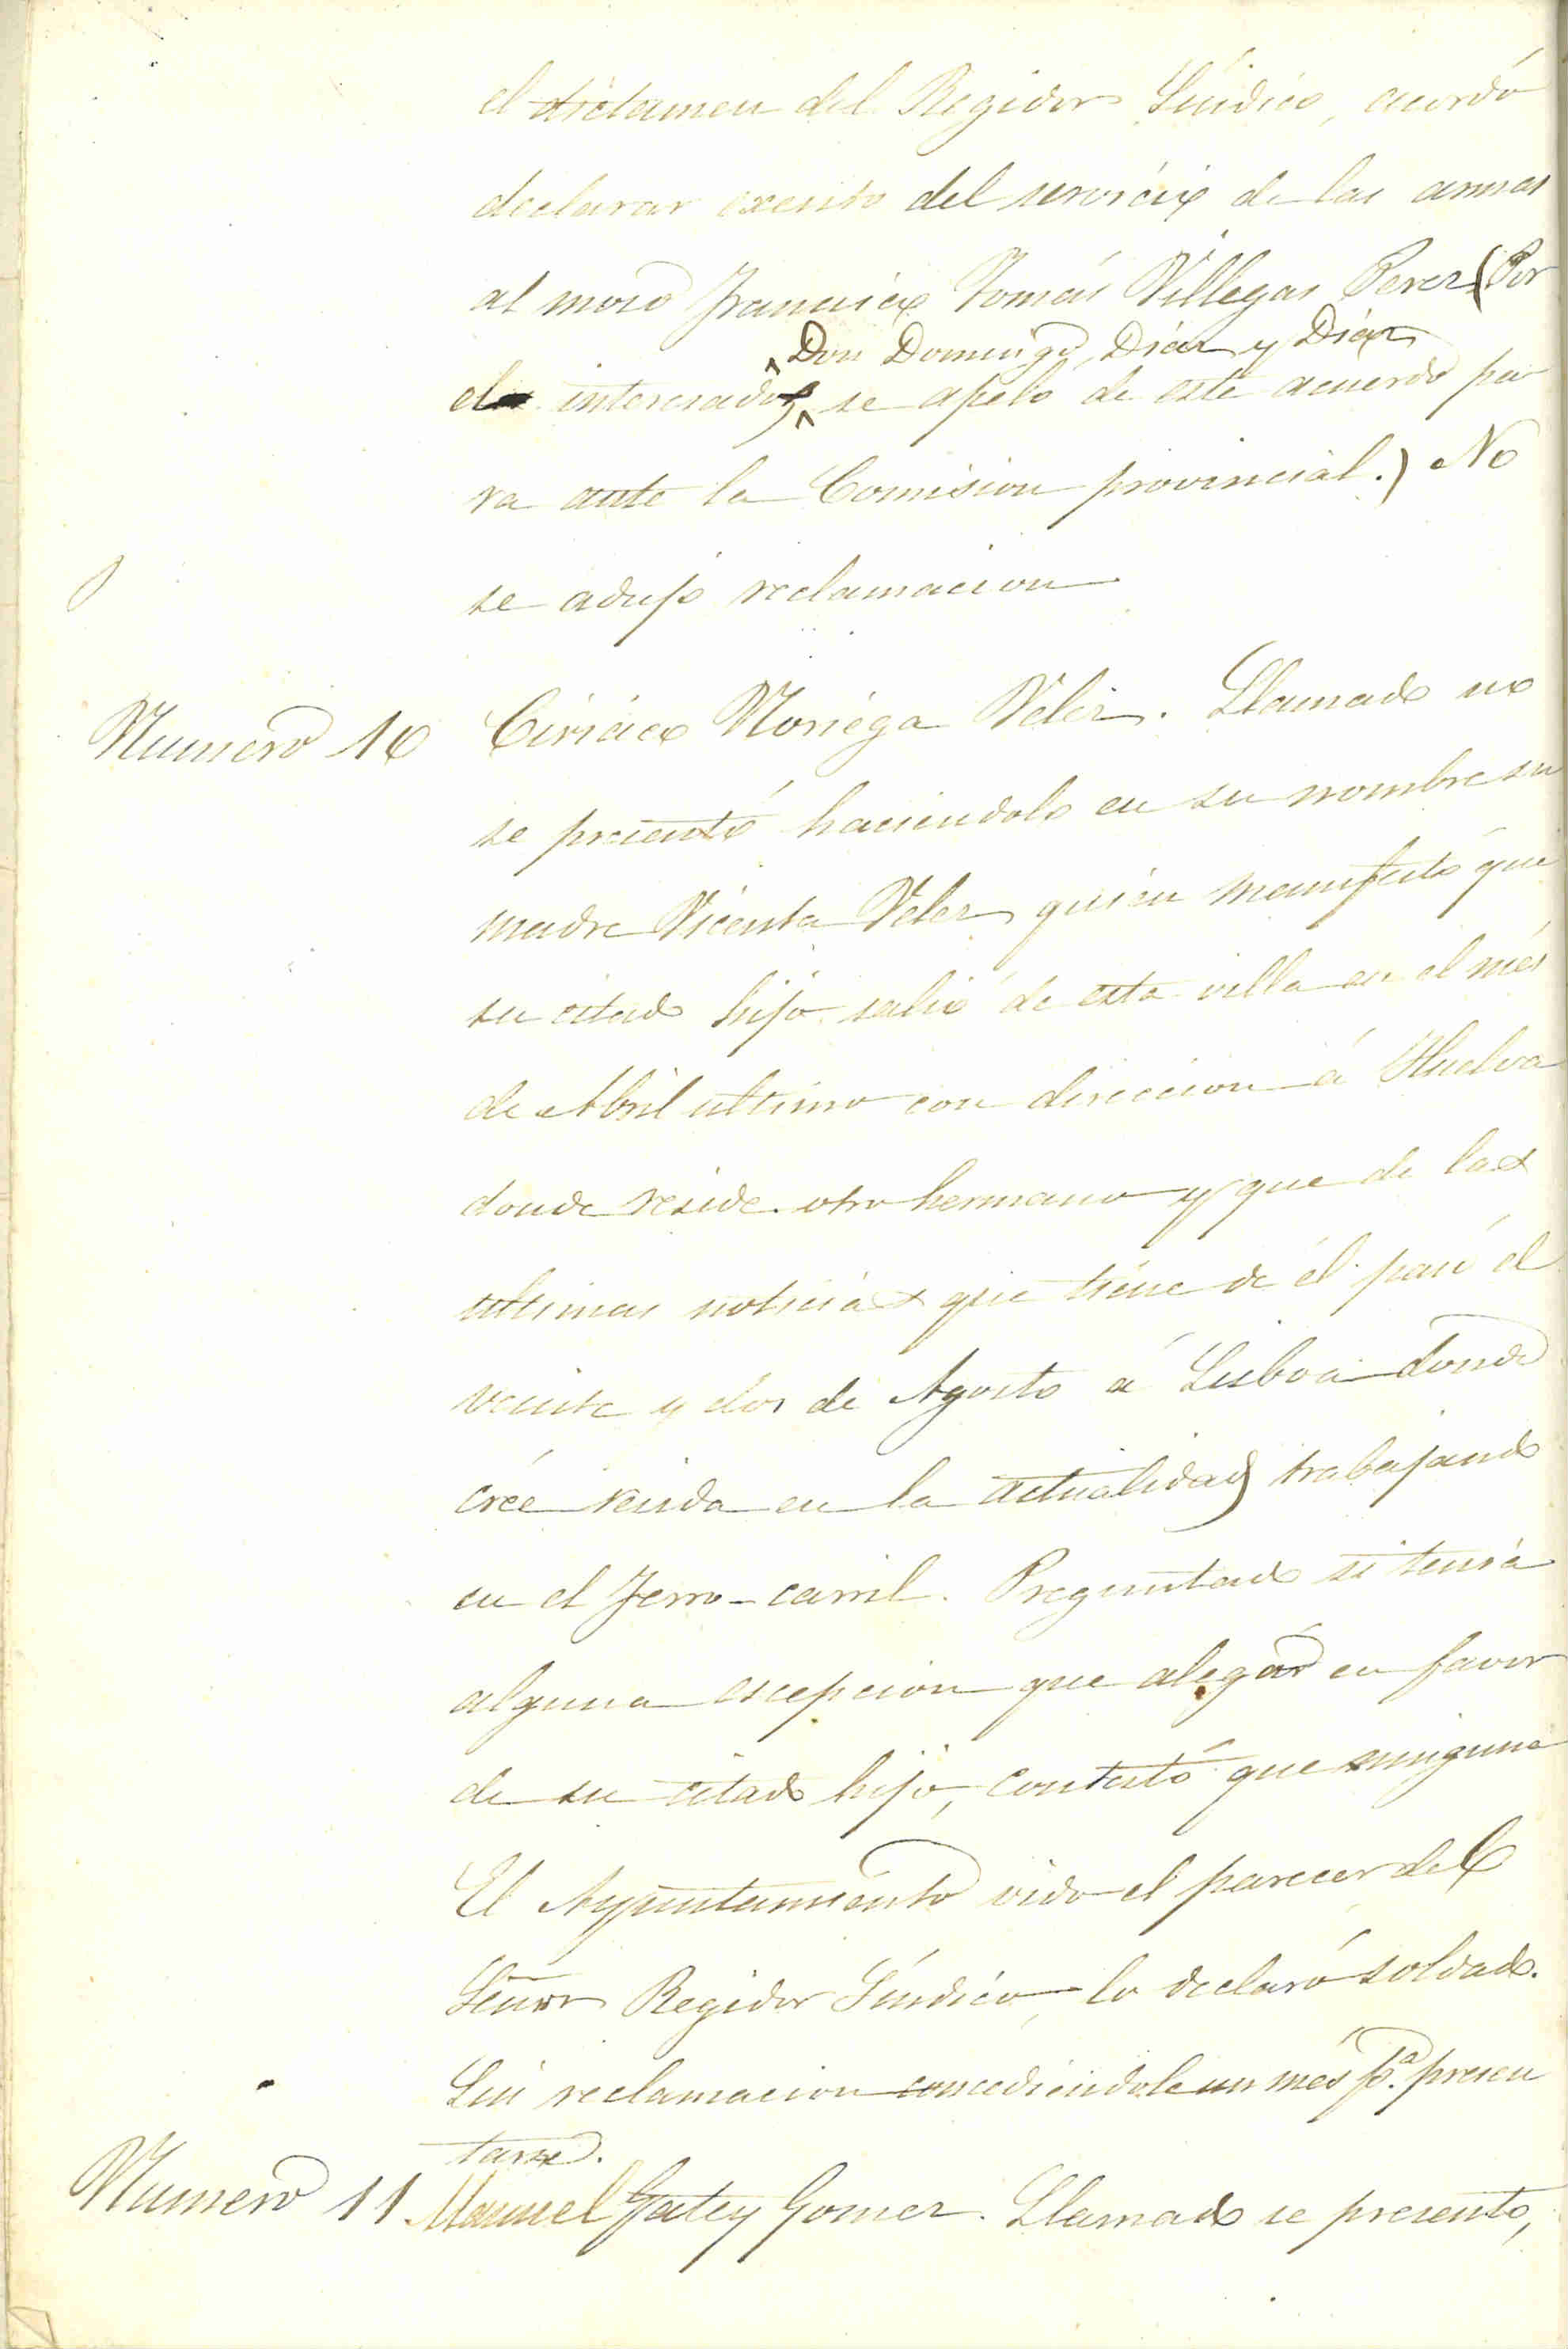 el dictamen del Regidor Síndico, acordó
declarar exento del servicio de las armas
al mozo Francisco Tomás Villegas Perez (Por
Don Domingo Diaz y Diaz
el interesado se apeló de este acuerdo pa
ra ante la Comision provincial.) No
se adujo reclamacion
Numero 10 Ciriaco Noriega Velez. Llamado no
se presentó haciendolo en su nombre su
madre Vicenta Velez quien manifestó que
su citado hijo salió de esta villa en el més
de Abril ultimo con direccion á Huelva
donde reside otro hermano y que de las
ultimas noticias que tiene de él pasó el
veinte y dos de Agosto á Lisboa donde
crée resida en la actualidad trabajando
en el ferro-carril. Preguntado si tenia
alguna escepcion que alegar en favor
de su citado hijo, contestó que ninguna
El Ayuntamiento oido el parecer del
Señor Regidor Síndico lo declaró soldado.
Sin reclamacion concediendole un més pª. presen
tarse.
Numero 11 Manuel Gomez. Llamado se presentó,